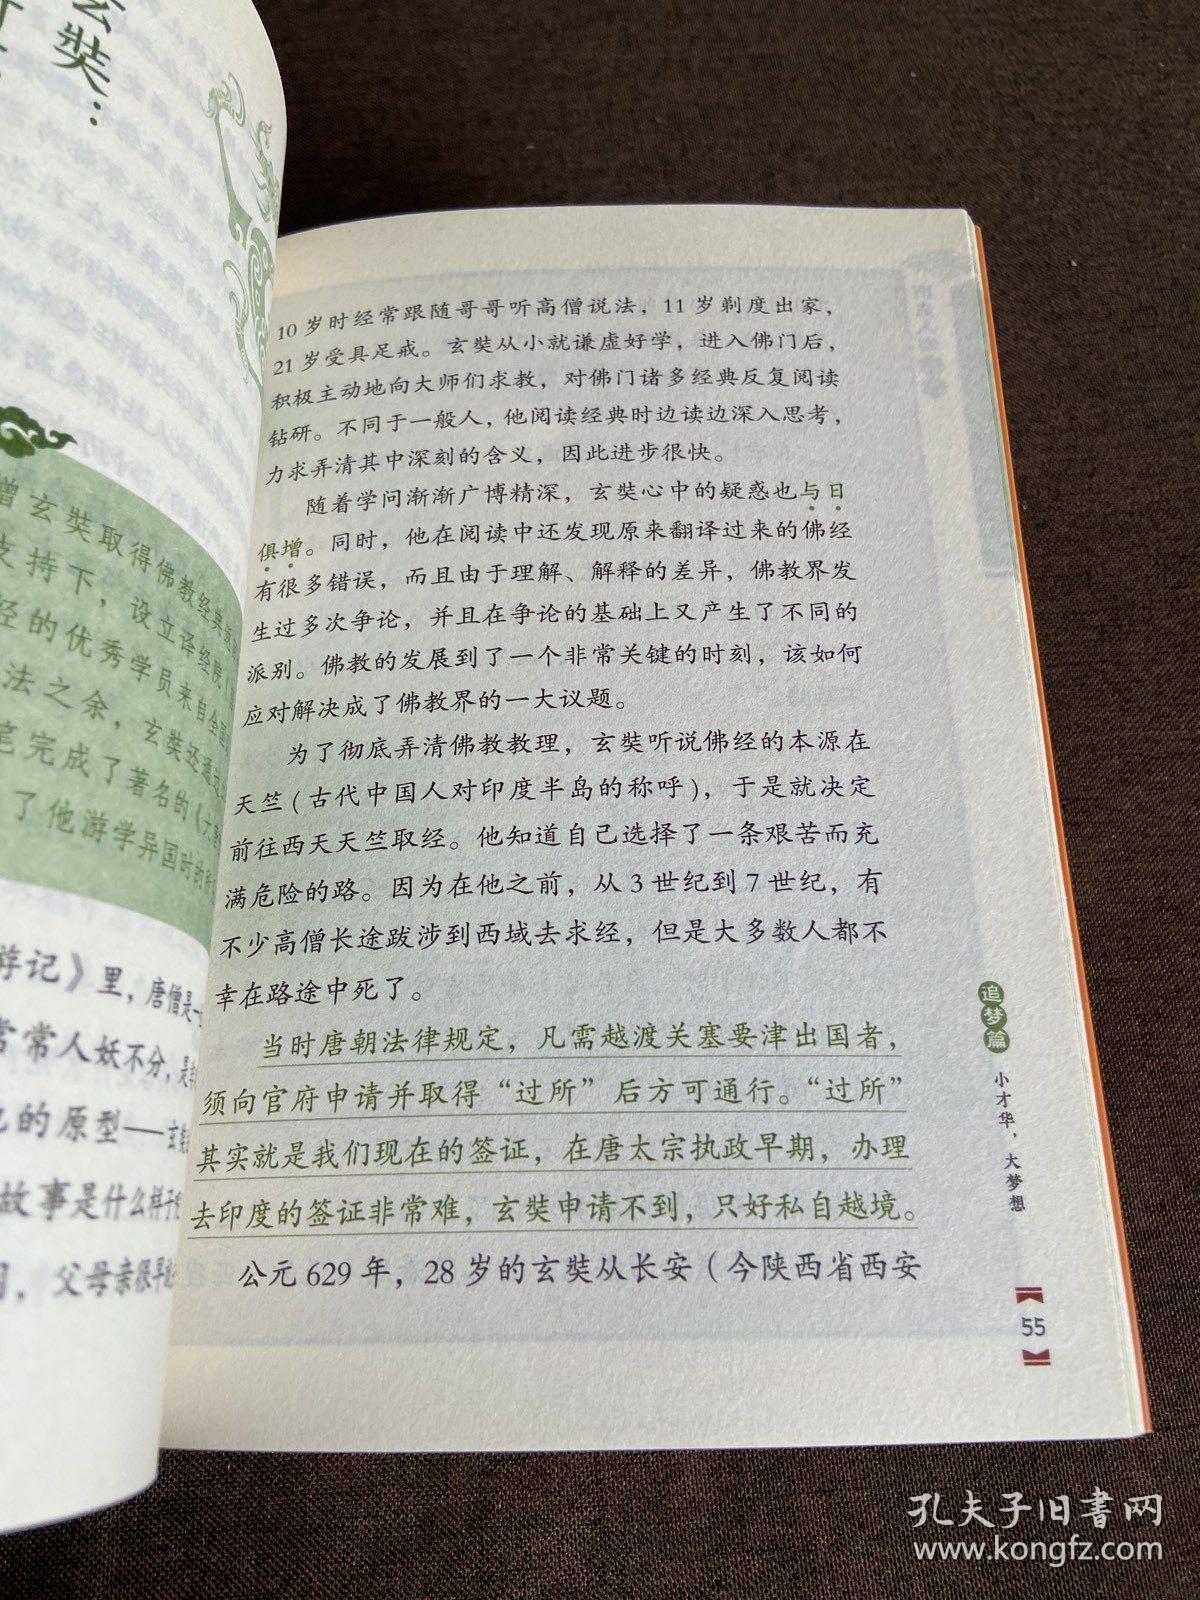 玄奘：
增玄奘取得佛教经典
支持下，设立译经院
经的优秀学员来自全国
法之余，玄奘还通过
笔完成了著名的《大唐
了他游学异国时的所
游记》里，唐僧是一
常常人妖不分，是
己的原型——玄奘
故事是什么样子
，父母亲很早
10 岁时经常跟随哥哥听高僧说法，11 岁剃度出家，
21 岁受具足戒。玄奘从小就谦虚好学，进入佛门后，
积极主动地向大师们求教，对佛门诸多经典反复阅读
钻研。不同于一般人，他阅读经典时边读边深入思考，
力求弄清其中深刻的含义，因此进步很快。
随着学问渐渐广博精深，玄奘心中的疑惑也与日
俱增。同时，他在阅读中还发现原来翻译过来的佛经
有很多错误，而且由于理解、解释的差异，佛教界发
生过多次争论，并且在争论的基础上又产生了不同的
派别。佛教的发展到了一个非常关键的时刻，该如何
应对解决成了佛教界的一大议题。
为了彻底弄清佛教教理，玄奘听说佛经的本源在
天竺（古代中国人对印度半岛的称呼），于是就决定
前往西天天竺取经。他知道自己选择了一条艰苦而充
满危险的路。因为在他之前，从 3 世纪到 7 世纪，有
不少高僧长途跋涉到西域去求经，但是大多数人都不
幸在路途中死了。
当时唐朝法律规定，凡需越渡关塞要津出国者，
须向官府申请并取得“过所”后方可通行。“过所”
其实就是我们现在的签证，在唐太宗执政早期，办理
去印度的签证非常难，玄奘申请不到，只好私自越境。
公元 629 年，28 岁的玄奘从长安（今陕西省西安
追梦篇
小才华，大梦想
55
孔夫子旧书网
www.kongfz.com